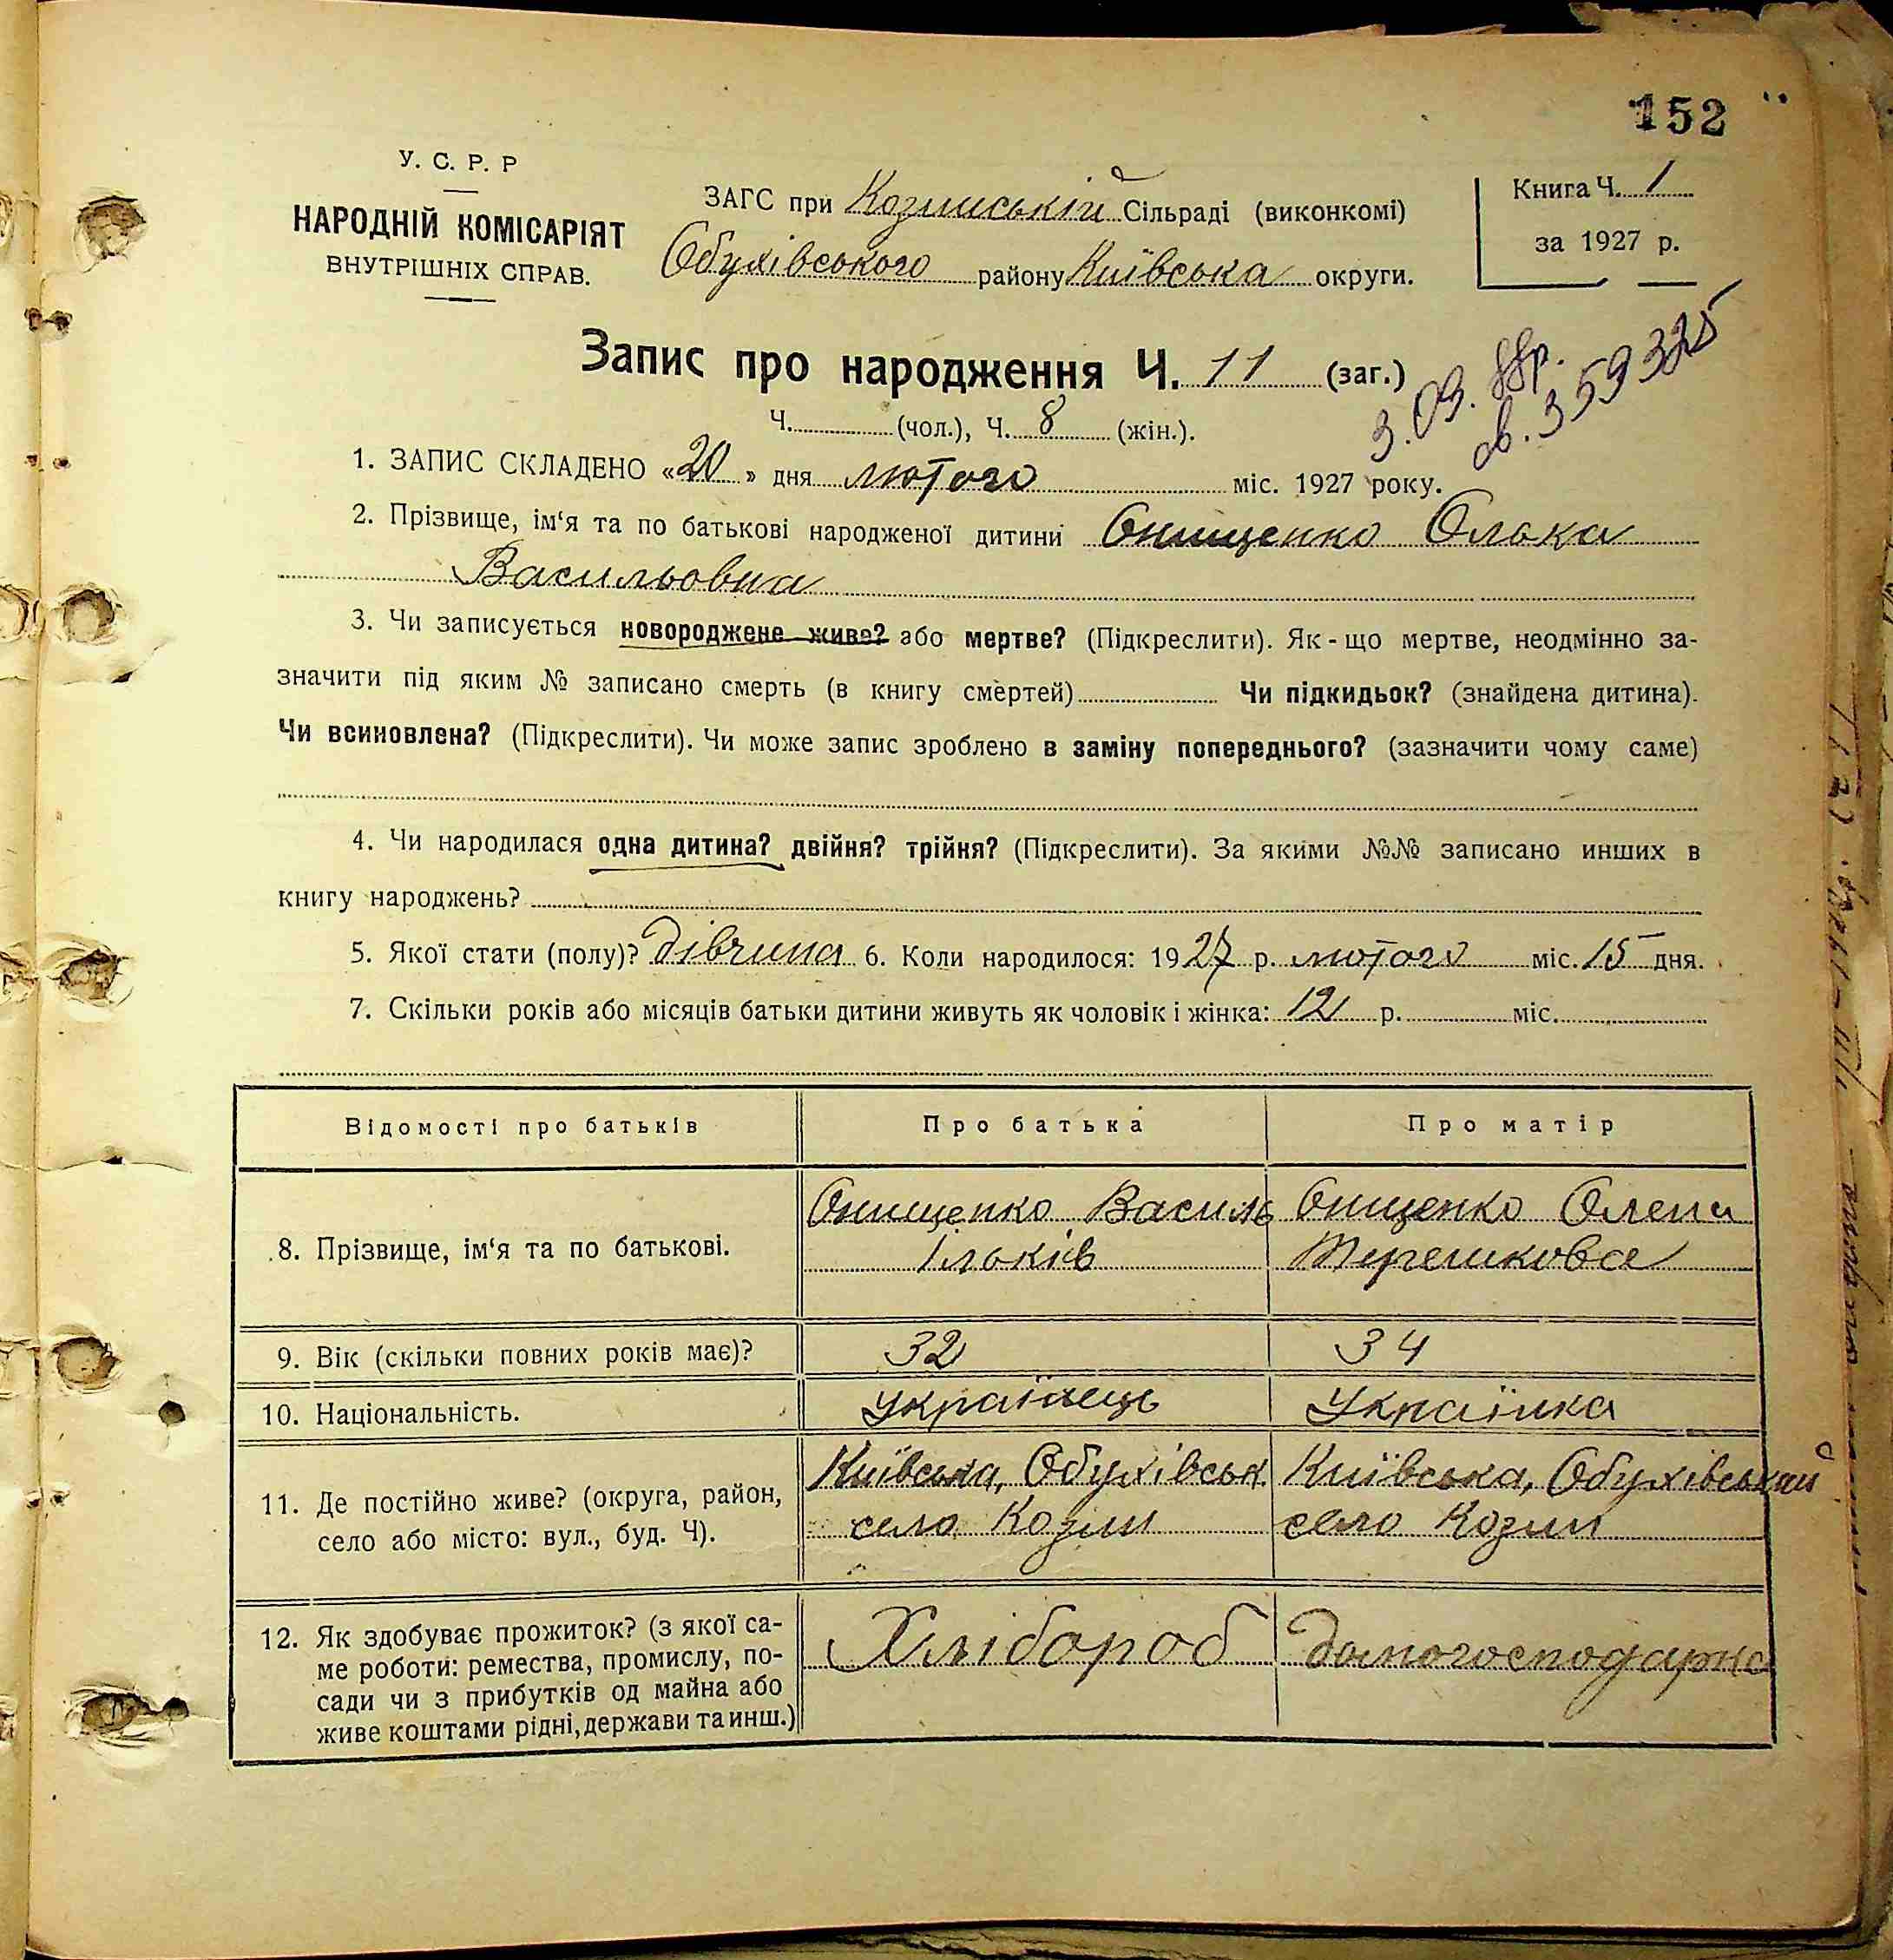 152
У. С. Р. Р
НАРОДНІЙ КОМІСАРІЯТ
ВНУТРІШНІХ СПРАВ.
ЗАГС при Козинській Сільраді (виконкомі)
Обухівського району Київська округи.
Книга Ч. 1
за 1927 р.
Запис про народження Ч. 11 (заг.)
Ч. (чол.), Ч. 8 (жін.).
3.09. 88р.
св. 359325
1. ЗАПИС СКЛАДЕНО «20» дня лютого міс. 1927 року.
2. Прізвище, ім‘я та по батькові народженої дитини Онищенко Олька
Васильовна
3. Чи записується новороджене живе? або мертве? (Підкреслити). Як-що мертве, неодмінно за-
значити під яким № записано смерть (в книгу смертей) Чи підкидьок? (знайдена дитина).
Чи всиновлена? (Підкреслити). Чи може запис зроблено в заміну попереднього? (зазначити чому саме)
4. Чи народилася одна дитина? двійня? трійня? (Підкреслити). За якими №№ записано инших в
книгу народжень?
5. Якої стати (полу)? дівчина 6. Коли народилося: 1927 р. лютого міс. 15 дня.
7. Скільки років або місяців батьки дитини живуть як чоловік і жінка: 12 р. міс.
Відомості про батьків Про батька Про матір
8. Прізвище, ім‘я та по батькові. Онищенко Василь Онищенко Олена
Ільків Терешкова
9. Вік (скільки повних років має)? 32 34
10. Національність. Українець Українка
11. Де постійно живе? (округа, район, село або місто: вул., буд. Ч). Київська, Обухівськ Київська, Обухівський
село Козин село Козин
12. Як здобуває прожиток? (з якої са-
ме роботи: ремества, промислу, по-
сади чи з прибутків од майна або
живе коштами рідні, держави та инш.)
Хлібороб домогосподарка